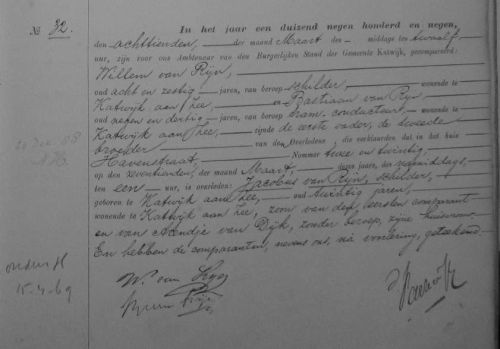 No 32.
In het jaar een duizend negen honderd en negen,
den achttienden, der maand Maart des middags te twaalf
uur, zijn voor ons Ambtenaar van den Burgerlijken Stand der Gemeente Katwijk, gecompareerd:
Willem van Rijn,
oud acht en zestig jaren, van beroep schilder, wonende te
Katwijk aan Zee, en Bastiaan van Rijn
oud negen en dertig jaren, van beroep tram-conducteur, wonende te
Katwijk aan Zee, zijnde de eerste vader, de tweede
broeder van den Overledene, die verklaarden dat in het huis
Havenstraat, Nommer twee en twintig,
op den zeventienden, der maand Maart, dezes jaars, des namiddags,
ten een uur, is overleden: Jacobus van Rijn, schilder,
geboren te Katwijk aan Zee, oud twintig jaren,
wonende te Katwijk aan Zee, zoon van den eersten comparant
en van van Dijk, zonder beroep, zijne huisvrouw.
En hebben de comparanten, nevens ons, na voorlezing, geteekend.
W. van Rijn
15.4.69